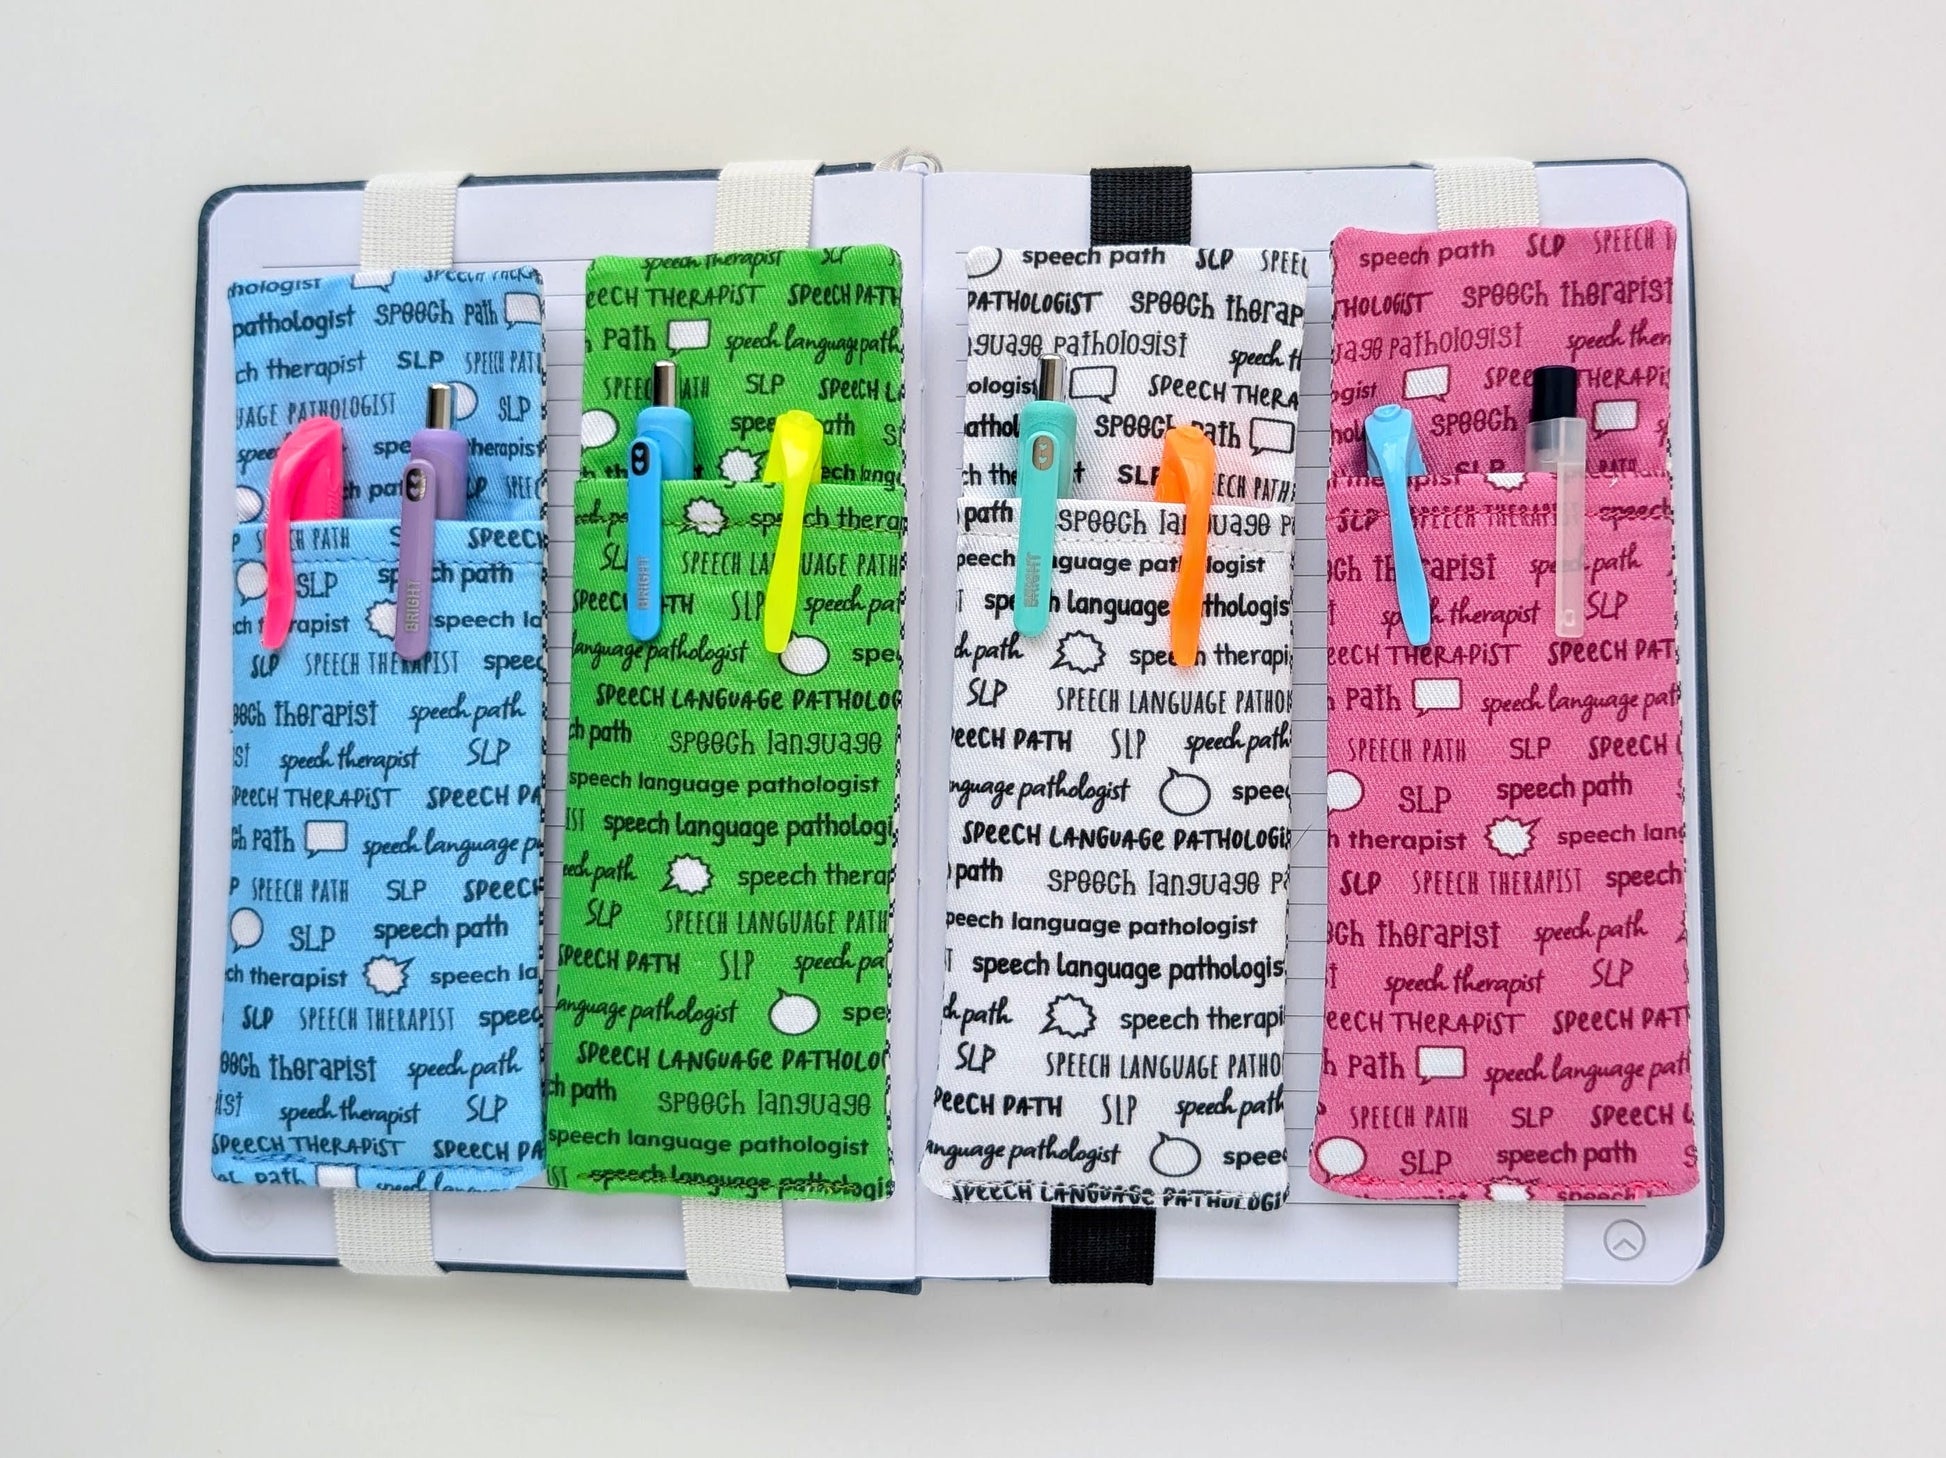 hologist
pathologist speech path
ch therapist SLP SPEECH PAT
UAGE PATHOLOGIST SLP
spee therapist
ch pat LP SPEE
P H PATH SPEECH
SLP speech path
ch rapist speech la
BRIGHT
SLP SPEECH THERAPIST speec
eech therapist speech path
ist speech therapist SLP
SPEECH THERAPIST SPEECH PA
ch path speech language p
P SPEECH PATH SLP SPEECH
SLP speech path
ch therapist speech la
SLP SPEECH THERAPIST speec
eech therapist speech path
ist speech therapist SLP
SPEECH THERAPIST SPEECH PA
path speech langu
speech therapist SLP
eech Therapist SPEECH PATH
Path speech language path
SPEEC ATH SLP SPEECH LA
spee ath S
ech lang
sp ch thera
SL SPEECH LA UAGE PATH
BRIGHT
SPEEC TH SLP speech pa
language pathologist spe
SPEECH LANGUAGE PATHOLOG
ch path speech language
speech language pathologist
IST speech language pathologi
eech path speech therap
SLP SPEECH LANGUAGE PATH
SPEECH PATH SLP speech pa
anguage pathologist spe
SPEECH LANGUAGE PATHOLO
ch path speech language
speech language pathologist
IST speech language pathologi
speech path SLP SPEEC
PATHOLOGIST speech therap
nguage pathologist speech th
ologist SPEECH THERA
athol speech path
th t SLP EECH PATH
path speech la uage P
peech nguage pat logist
BRIGHT
T sp h language thologis
ch path speec therapi
SLP SPEECH LANGUAGE PATHO
PEECH PATH SLP speech path
nguage pathologist speec
SPEECH LANGUAGE PATHOLOGI
path speech language pa
peech language pathologist
T speech language pathologis
ch path speech therapi
SLP SPEECH LANGUAGE PATHO
PEECH PATH SLP speech path
anguage pathologist speec
SPEECH LANGUAGE PATHOLOGI
speech path SLP SPEECH
THOLOGIST speech therapist
uage pathologist speech ther
ogist SPEE THERAPI
hol speech
SLP PATH
SLP SPEECH THERAPI speech
ch th apist spe path
sp h therapist SLP
EECH THERAPIST SPEECH PAT
Path speech language pat
SPEECH PATH SLP SPEECH L
SLP speech path S
h therapist speech lang
SLP SPEECH THERAPIST speech
ech therapist speech path
T speech therapist SLP
EECH THERAPIST SPEECH PAT
h Path speech language path
SPEECH PATH SLP SPEECH L
SLP speech path S
speech